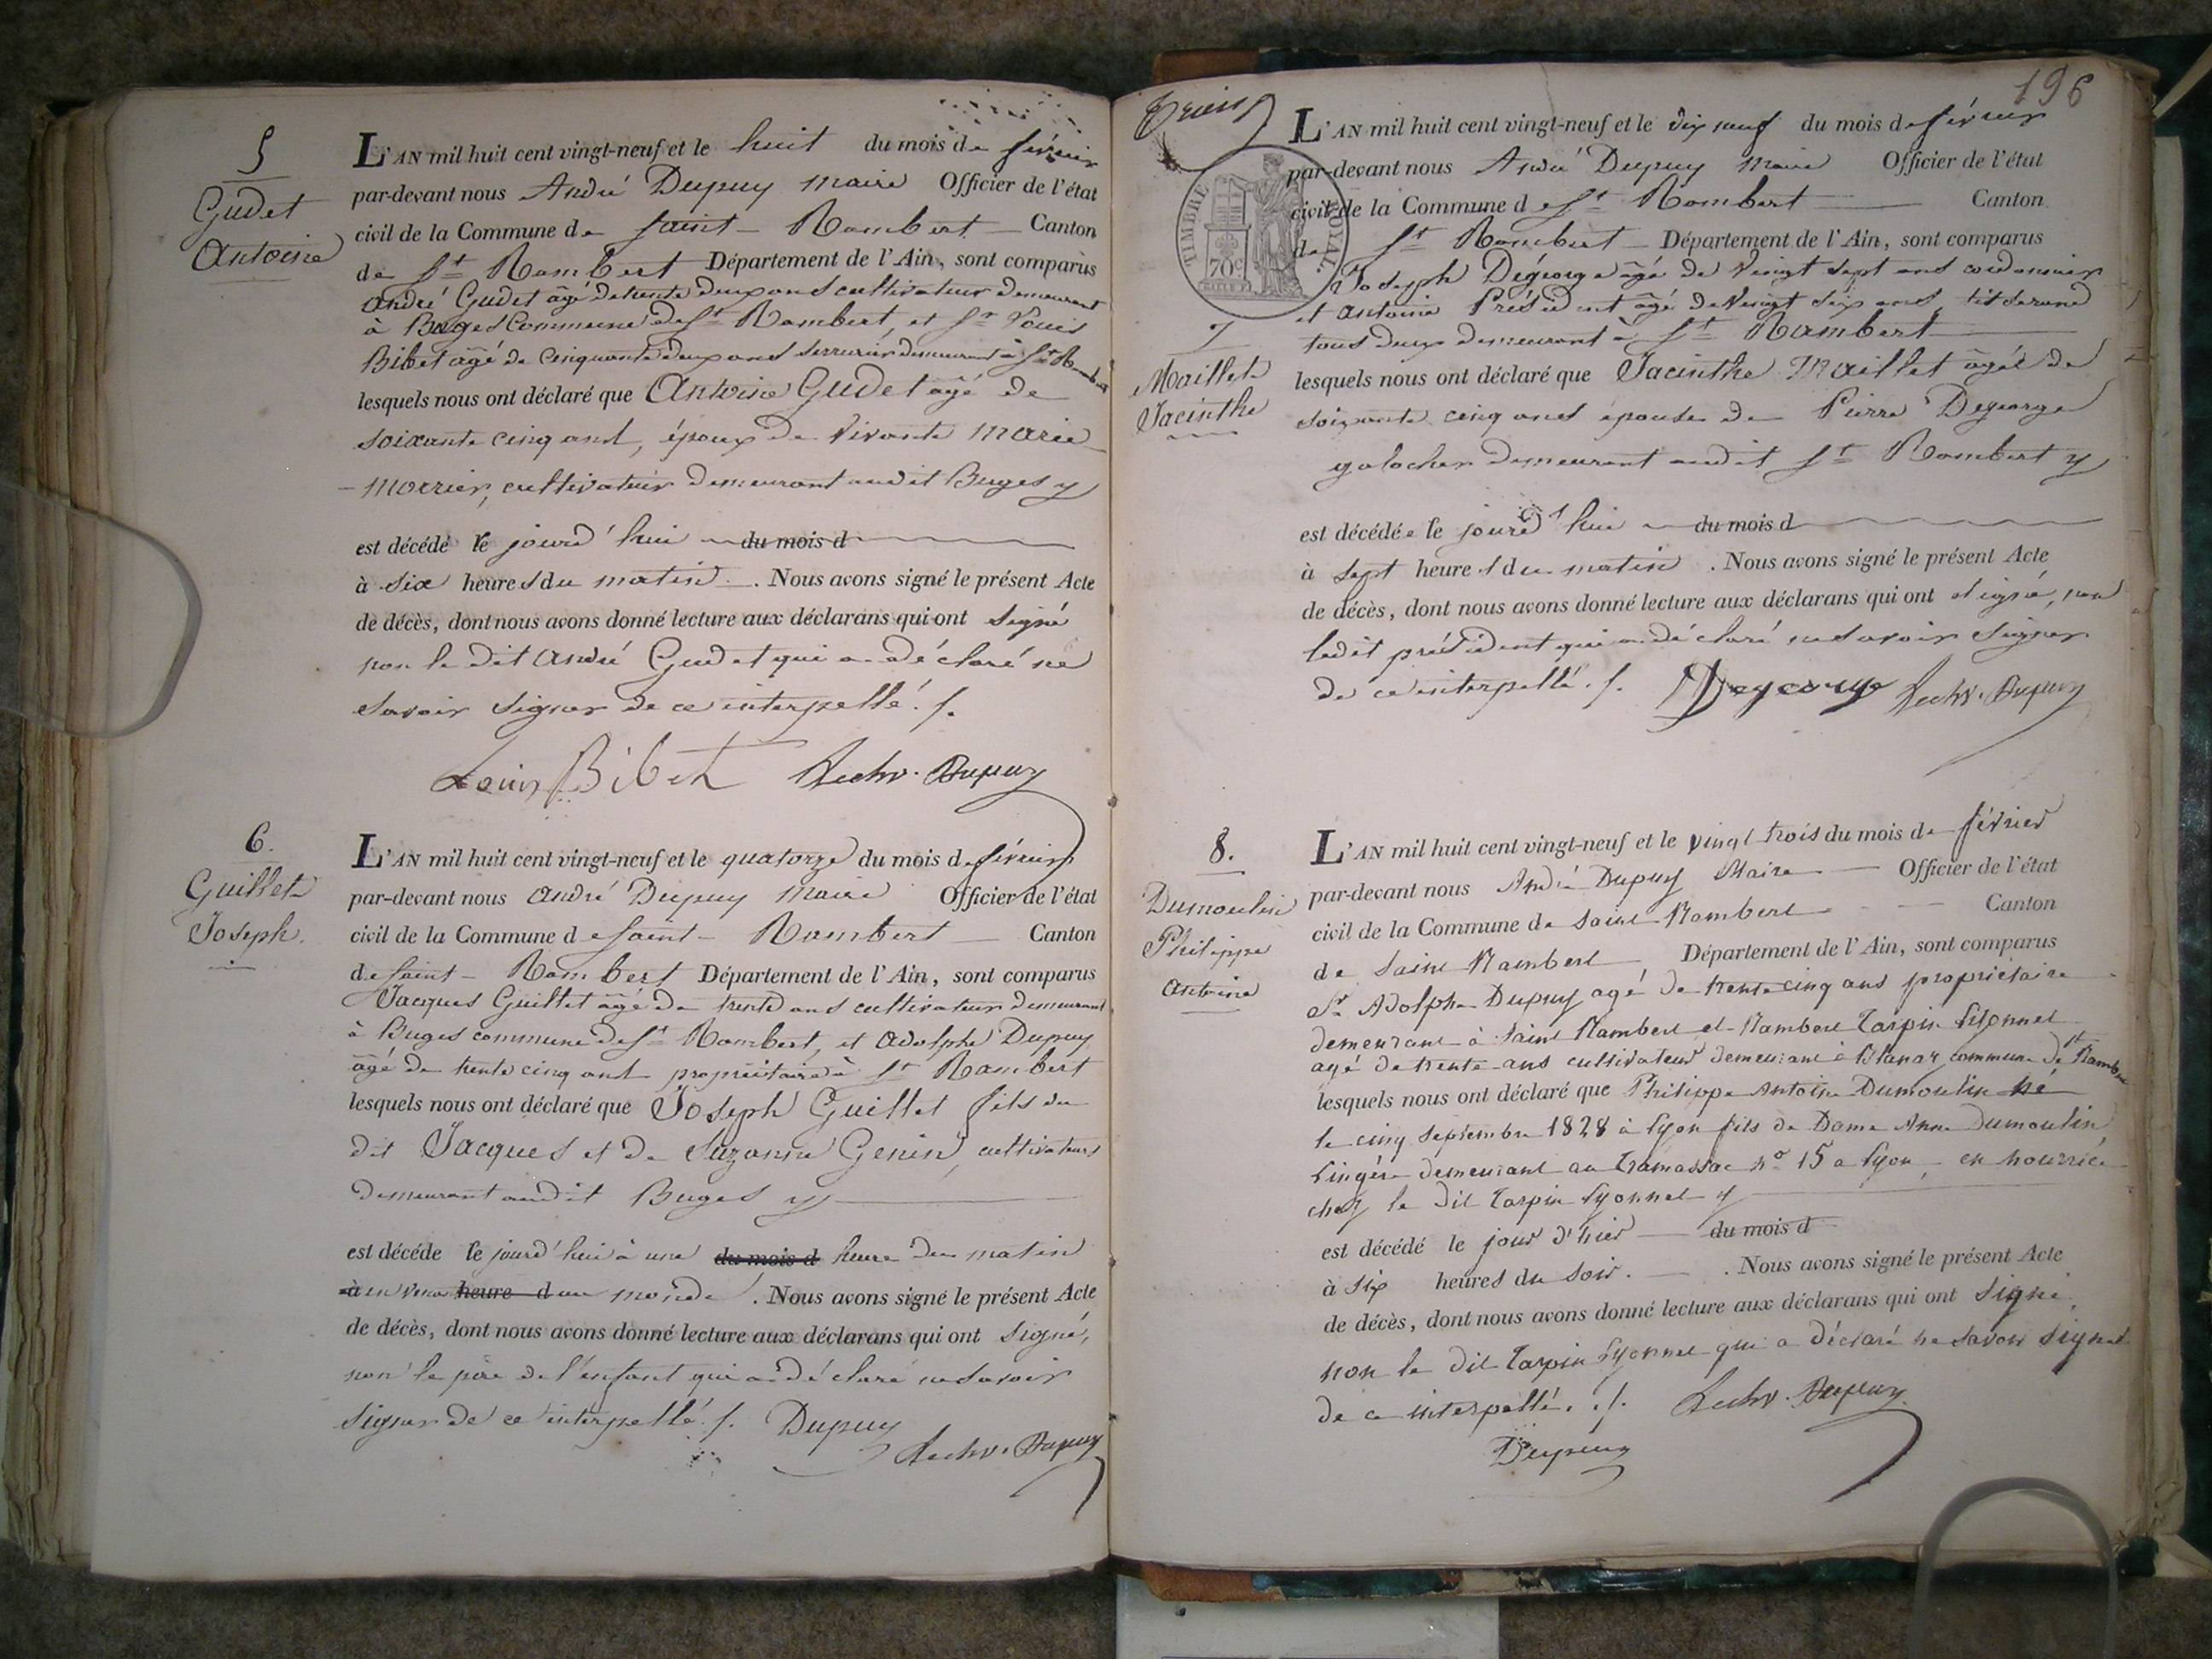 5
Gudet
Antoine
L'AN mil huit cent vingt-neuf et le huit du mois de février
par-devant nous André Dupuy Maire Officier de l'état
civil de la Commune de Saint-Rambert Canton
de St Rambert Département de l'Ain, sont comparus
André Gudet âgé de trente deux ans cultivateur demeurant
à Buges Commune de St Rambert, et Sr Louis
Bibet âgé de cinquante deux ans serrurier demeurant à St Rambert
lesquels nous ont déclaré que Antoine Gudet âgé de
soixante cinq ans, époux de vivante Marie
cultivateur demeurant audit Buges y
est décédé le jourd'hui du mois d
à six heures du matin. Nous avons signé le présent Acte
de décès, dont nous avons donné lecture aux déclarans qui ont signé
non le dit André Gudet qui a déclaré ne
savoir signer de ce interpellé ./.
Louis Bibet Dupuy
6.
Guillet
Joseph.
L'AN mil huit cent vingt-neuf et le quatorze du mois de février
par-devant nous André Dupuy Maire Officier de l'état
civil de la Commune de Saint-Rambert Canton
de Saint-Rambert Département de l'Ain, sont comparus
Jacques Guillet âgé de trente ans cultivateur demeurant
à Buges commune de St Rambert, et Adolphe Dupuy
âgé de trente cinq ans propriétaire à St Rambert
lesquels nous ont déclaré que Joseph Guillet fils du
dit Jacques et de Suzanne Genin, cultivateurs
demeurant audit Buges y
est décédé le jourd'hui à une du mois d heure du matin
à heure d au monde. Nous avons signé le présent Acte
de décès, dont nous avons donné lecture aux déclarans qui ont signé,
non le père de l'enfant qui a déclaré ne savoir
signer de ce interpellé ./. Dupuy
Dupuy
196
TIMBRE ROYAL
70c
7
Maillet
Jacinthe
L'AN mil huit cent vingt-neuf et le dix neuf du mois de février
par-devant nous André Dupuy Maire Officier de l'état
civil de la Commune de St Rambert Canton
de St Rambert Département de l'Ain, sont comparus
Joseph Degeorge âgé de vingt sept ans cordonnier
et Antoine Président âgé de vingt six ans, tisserand
tous deux demeurant à St Rambert
lesquels nous ont déclaré que Jacinthe Maillet âgée de
soixante cinq ans épouse de Pierre Degeorge
galocher demeurant audit St Rambert y
est décédée le jourd'hui du mois d
à sept heures du matin. Nous avons signé le présent Acte
de décès, dont nous avons donné lecture aux déclarans qui ont signé, non
ledit président qui a déclaré ne savoir signer
de ce interpellé ./. Degeorge Dupuy
8.
Dumoulin
Philippe
Antoine
L'AN mil huit cent vingt-neuf et le vingt trois du mois de février
par-devant nous André Dupuy Maire Officier de l'état
civil de la Commune de Saint-Rambert Canton
de Saint Rambert Département de l'Ain, sont comparus
Sr Adolphe Dupuy agé de trente cinq ans propriétaire
demeurant à Saint Rambert et Rambert Tarpin Lyonnet
agé de trente ans cultivateur demeurant à Blanaz commune de St Rambert
lesquels nous ont déclaré que Philippe Antoine Dumoulin né
le cinq septembre 1828 à Lyon fils de Dame Anne Dumoulin
Lingère demeurant au Tramassac no 15 a Lyon, en nourrice
chez le dit Tarpin Lyonnet y
est décédé le jour d'hier du mois d
à six heures du soir. Nous avons signé le présent Acte
de décès, dont nous avons donné lecture aux déclarans qui ont signé,
non le dit Tarpin Lyonnet qui a déclaré ne savoir signer
de ce interpellé. ./. Dupuy
Dupuy